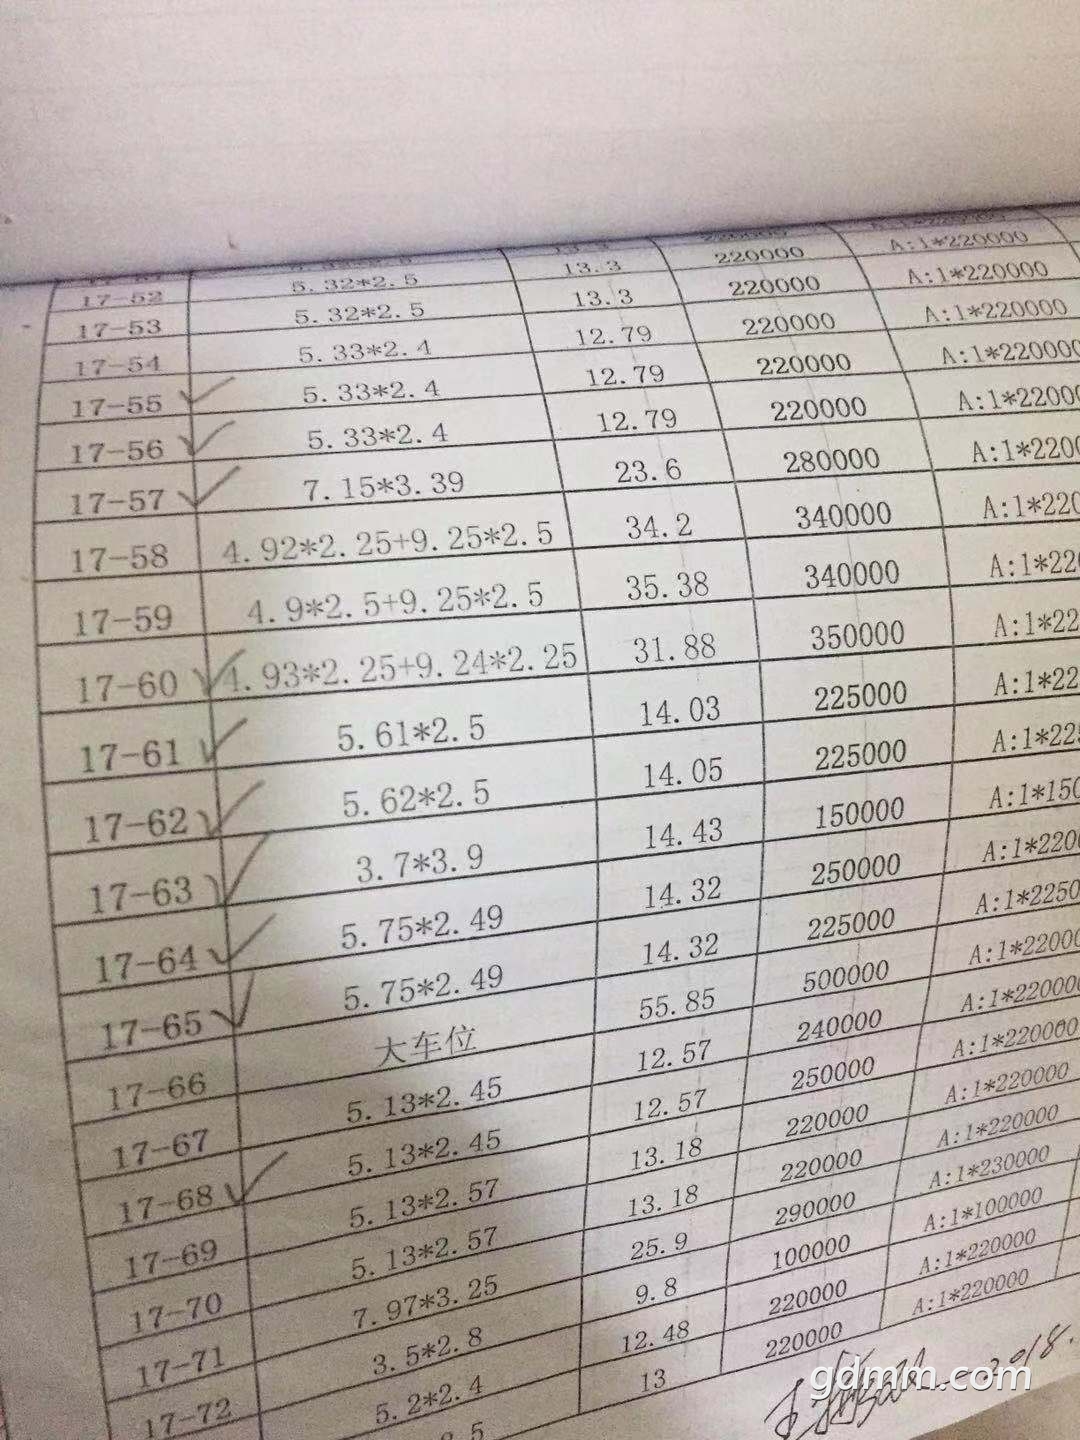 17-52 5.32*2.5 13.3 220000 A:1*220000
17-53 5.32*2.5 13.3 220000 A:1*220000
17-54 5.33*2.4 12.79 220000 A:1*220000
17-55 5.33*2.4 12.79 220000 A:1*220000
17-56 5.33*2.4 12.79 220000 A:1*22000
17-57 7.15*3.39 23.6 280000 A:1*220
17-58 4.92*2.25+9.25*2.5 34.2 340000 A:1*220
17-59 4.9*2.5+9.25*2.5 35.38 340000 A:1*22
17-60 4.93*2.25+9.24*2.25 31.88 350000 A:1*22
17-61 5.61*2.5 14.03 225000 A:1*22
17-62 5.62*2.5 14.05 225000 A:1*225
17-63 3.7*3.9 14.43 150000 A:1*150
17-64 5.75*2.49 14.32 250000 A:1*2200
17-65 5.75*2.49 14.32 225000 A:1*2250
17-66 大车位 55.85 500000 A:1*22000
17-67 5.13*2.45 12.57 240000 A:1*220000
17-68 5.13*2.45 12.57 250000 A:1*220000
17-69 5.13*2.57 13.18 220000 A:1*220000
17-70 5.13*2.57 13.18 220000 A:1*220000
17-71 7.97*3.25 25.9 290000 A:1*230000
17-72 3.5*2.8 9.8 100000 A:1*100000
5.2*2.4 12.48 220000 A:1*220000
13 220000 A:1*220000
2018.
gdmm.com